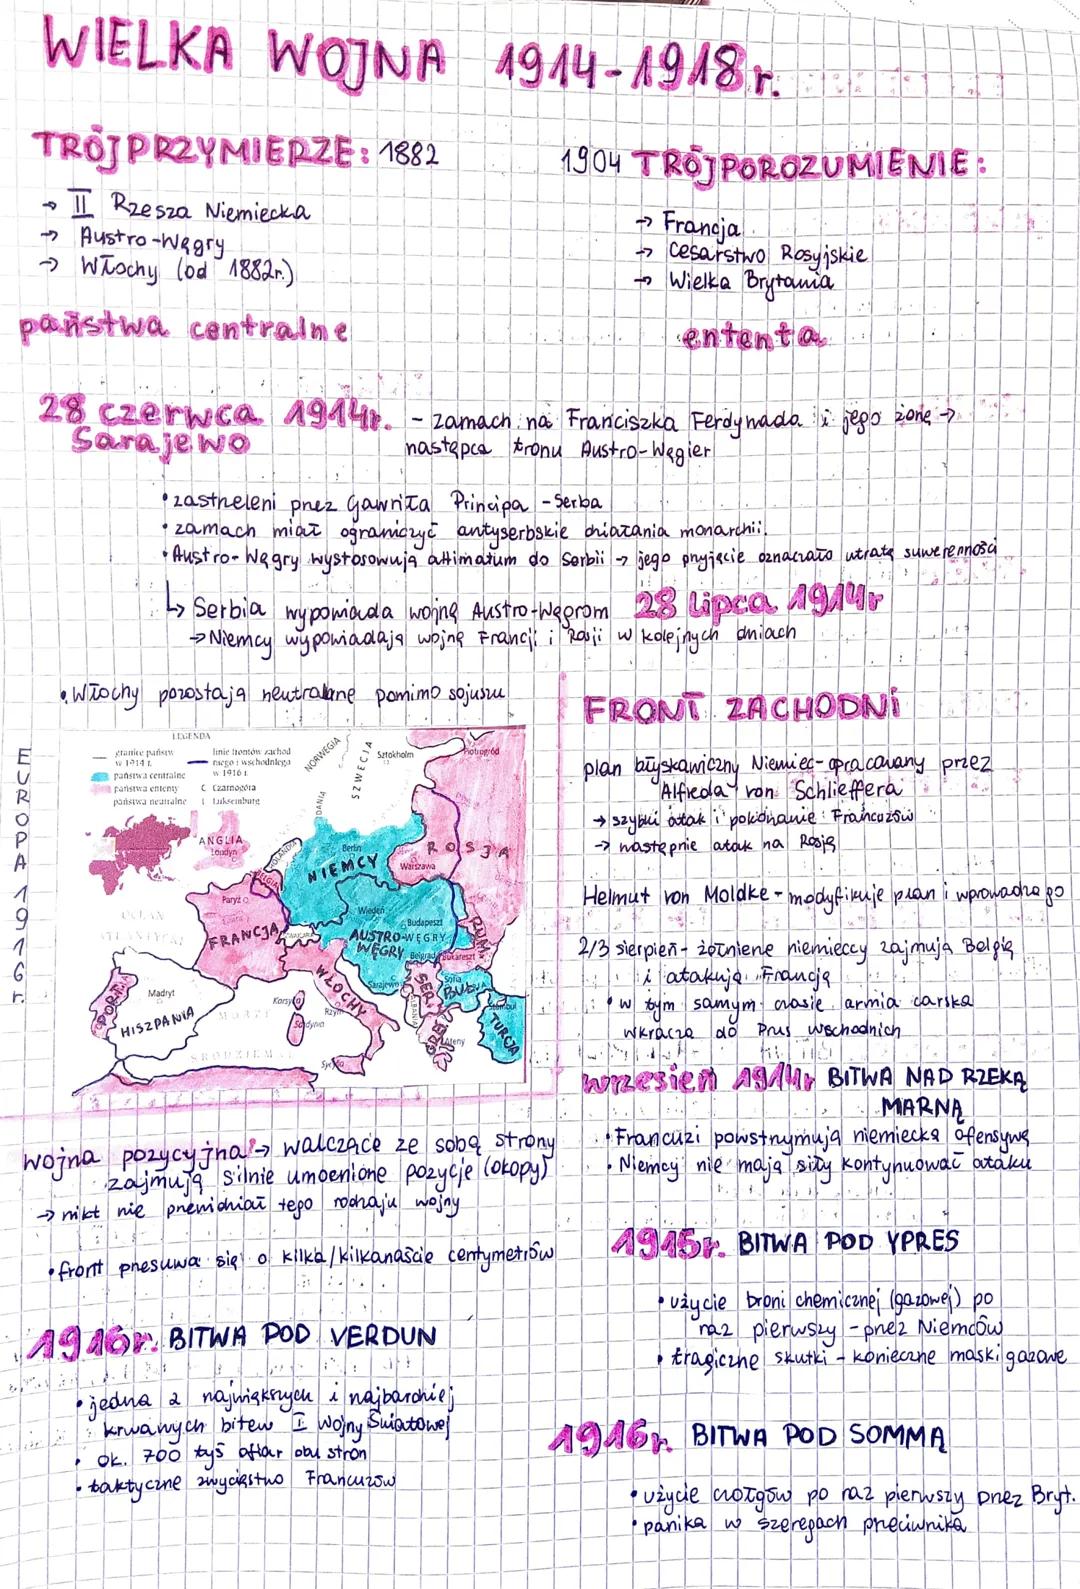 WIELKA WOJNA 1914-1918r.
TRÓJPRZYMIERZE: 1882
→ II Rzesza Niemiecka
→ Austro-Węgry
→ Włochy (od 1882r.)
państwa centralne
1904 TRÓJPOROZUMIENIE:
→ Francja
→ Cesarstwo Rosyjskie
→ Wielka Brytania
ententa
28 czerwca 1914r. - zamach na Franciszka Ferdynada i jego żonę →
Sarajewo następca tronu Austro-Węgier
• zastrzeleni przez Gawriła Principa - Serba
• zamach miał ograniczyć antyserbskie działania monarchii.
• Austro-Węgry wystosowują ultimatum do Serbii → jego przyjęcie oznaczało utratę suwerenności
↳ Serbia wypowiada wojnę Austro-Węgrom 28 lipca 1914r
→ Niemcy wypowiadają wojnę Francji i Rosji w kolejnych dniach
• Włochy pozostają neutralne pomimo sojuszu
EUROPA 1916r.
LEGENDA
granice państw w 1914 r.
linie frontów zachodniego i wschodniego w 1916 r.
państwa centralne
państwa ententy
państwa neutralne
C Czarnogóra
L Luksemburg
NORWEGIA
SZWECJA
Sztokholm
Piotrogród
DANIA
ANGLIA
Londyn
HOLANDIA
BELGIA
Berlin
NIEMCY
ROSJA
Warszawa
Paryż
FRANCJA
Wiedeń
Budapeszt
AUSTRO-WĘGRY
RUM.
Belgrad
Bukareszt
Sarajewo
SER.
Sofia
BUŁGA
ALBANIA
Stambuł
TURCJA
GREC
Ateny
WŁOCHY
Rzym
Korsyka
Sardynia
Sycylia
Madryt
HISZPANIA
PORT
OCEAN
ATLANTYCKI
MORZE
ŚRÓDZIEMNE
FRONT ZACHODNI
plan błyskawiczny Niemiec - opracowany przez
Alfreda von Schlieffera
→ szybki atak i pokonanie Francuzów
→ następnie atak na Rosję
Helmut von Moldke - modyfikuje plan i wprowadza go
2/3 sierpień - żołnierze niemieccy zajmują Belgię
i atakują Francję
• w tym samym czasie armia carska
wkracza do Prus wschodnich
wrzesień 1914r BITWA NAD RZEKĄ
MARNĄ
• Francuzi powstrzymują niemiecką ofensywę
• Niemcy nie mają siły kontynuować ataku
wojna pozycyjna → walczące ze sobą strony
zajmują silnie umocnione pozycje (okopy)
→ nikt nie przewidział tego rodzaju wojny
• front przesuwa się o kilka/kilkanaście centymetrów
1915r. BITWA POD YPRES
• użycie broni chemicznej (gazowej) po
raz pierwszy - przez Niemców
• tragiczne skutki - konieczne maski gazowe
1916r. BITWA POD VERDUN
• jedna z największych i najbardziej
krwawych bitew I Wojny Światowej
• ok. 700 tyś ofiar obu stron
• taktyczne zwycięstwo Francuzów
1916r. BITWA POD SOMMĄ
• użycie czołgów po raz pierwszy przez Bryt.
• panika w szeregach przeciwnika